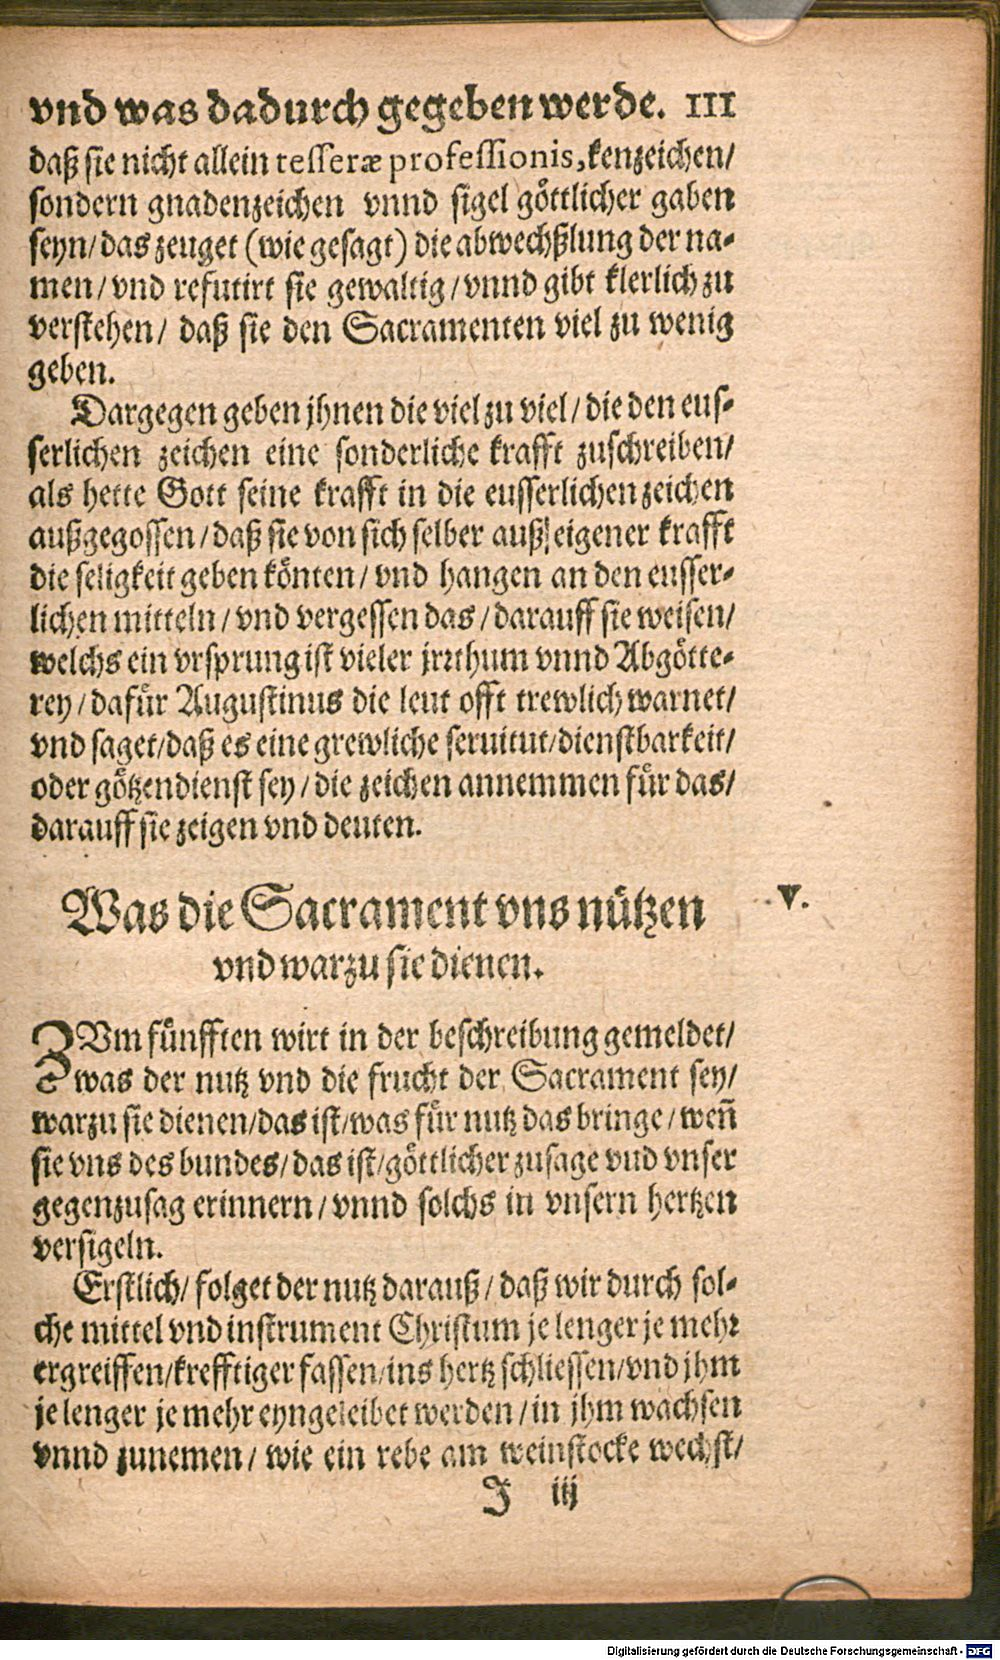 vnd was dadurch gegeben werde. 111
daß sie nicht allein tesseræ professionis, kenzeichen/
sondern gnadenzeichen vnnd sigel göttlicher gaben
seyn/ das zeuget (wie gesagt) die abwechßlung der na-
men/ vnd refutirt sie gewaltig/ vnnd gibt klerlich zu
verstehen/ daß sie den Sacramenten viel zu wenig
geben.
Dargegen geben jhnen die viel zu viel/ die den eus-
serlichen zeichen eine sonderliche krafft zuschreiben/
als hette Gott seine krafft in die eusserlichen zeichen
außgegossen/ daß sie von sich selber auß eigener krafft
die seligkeit geben könten/ vnd hangen an den eusser-
lichen mitteln/ vnd vergessen das/ darauff sie weisen/
welchs ein vrsprung ist vieler jrrthum vnnd Abgötte-
rey/ dafür Augustinus die leut offt trewlich warnet/
vnd saget/ daß es eine grewliche seruitut/ dienstbarkeit/
oder götzendienst sey/ die zeichen annemmen für das/
darauff sie zeigen vnd deuten.
Was die Sacrament vns nützen V.
vnd warzu sie dienen.
ZVm fünfften wirt in der beschreibung gemeldet/
was der nutz vnd die frucht der Sacrament sey/
warzu sie dienen/ das ist/ was für nutz das bringe/ weñ
sie vns des bundes/ das ist/ göttlicher zusage vnd vnser
gegenzusag erinnern/ vnnd solchs in vnsern hertzen
versigeln.
Erstlich/ folget der nutz darauß/ daß wir durch sol-
che mittel vnd instrument Christum je lenger je mehr
ergreiffen/ krefftiger fassen/ ins hertz schliessen/ vnd jhm
je lenger je mehr eyngeleibet werden/ in jhm wachsen
vnnd zunemen/ wie ein rebe am weinstocke wechst/
J iij
Digitalisierung gefördert durch die Deutsche Forschungsgemeinschaft - DFG